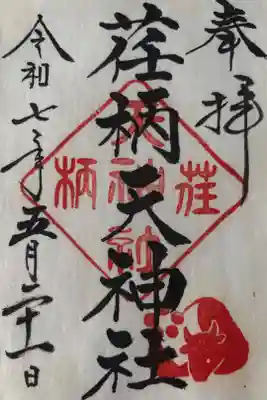 奉拝
荏柄天神社
令和七年五月二十一日
荏柄天神社